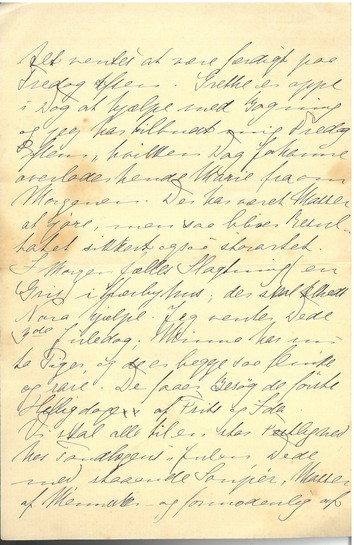 Alt ventes at være færdigt paa
Fredag Aften. Grethe er oppe
i Dag at hjælpe med Bagning
og jeg har tilbudt mig Fredag
Aften, hvilken Dag Johanne
overlader hende Mirrie fra om
Morgenen. Der har været Masser
at gjøre, men saa bliver Resul-
tatet sikkert ogsaa storartet.
I Morgen fælles Slagtning en
Gris i ; der skal
Nora hjælpe. Jeg venter Dede
Juledag. Minne har nu
to Piger, og de er begge saa flinke
og rare. De faaer Besøg de første
Helligdage af Frits og Ida.
Vi skal alle til en stor Festlighed
hos Tandlægens i Julen
med staaende Souper, Masser
af Mennesker og formodentlig